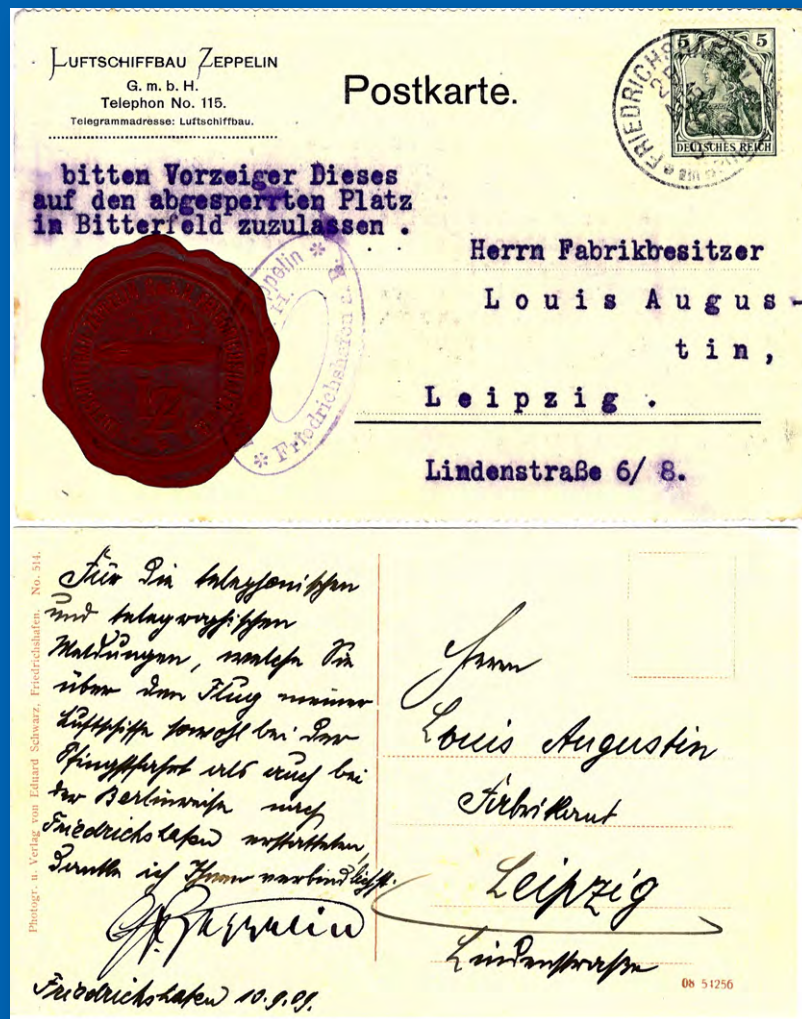 LUFTSCHIFFBAU ZEPPELIN
G. m. b. H.
Telephon No. 115.
Telegrammadresse: Luftschiffbau.
Postkarte.
FRIEDRICHSHAFEN
5 5
DEUTSCHES REICH
bitten Vorzeiger Dieses
auf den abgesperrten Platz
in Bitterfeld zuzulassen .
Friedrichshafen a. B.
Herrn Fabrikbesitzer
Louis Augus-
tin,
Leipzig .
Lindenstraße 6/ 8.
Photogr. u. Verlag von Eduard Schwarz, Friedrichshafen. No. 514.
Für die telephonischen
und telegraphischen
Meldungen, welche Sie
über den Flug meiner
Luftschiffe sowohl bei der
Pfingstfahrt als auch bei
der Berlinreise nach
Friedrichshafen erstatteten,
danke ich Ihnen verbindlichst.
Gf. Zeppelin
Friedrichshafen 10.9.09.
Herrn
Louis Augustin
Fabrikant
Leipzig
Lindenstraße
08 51256